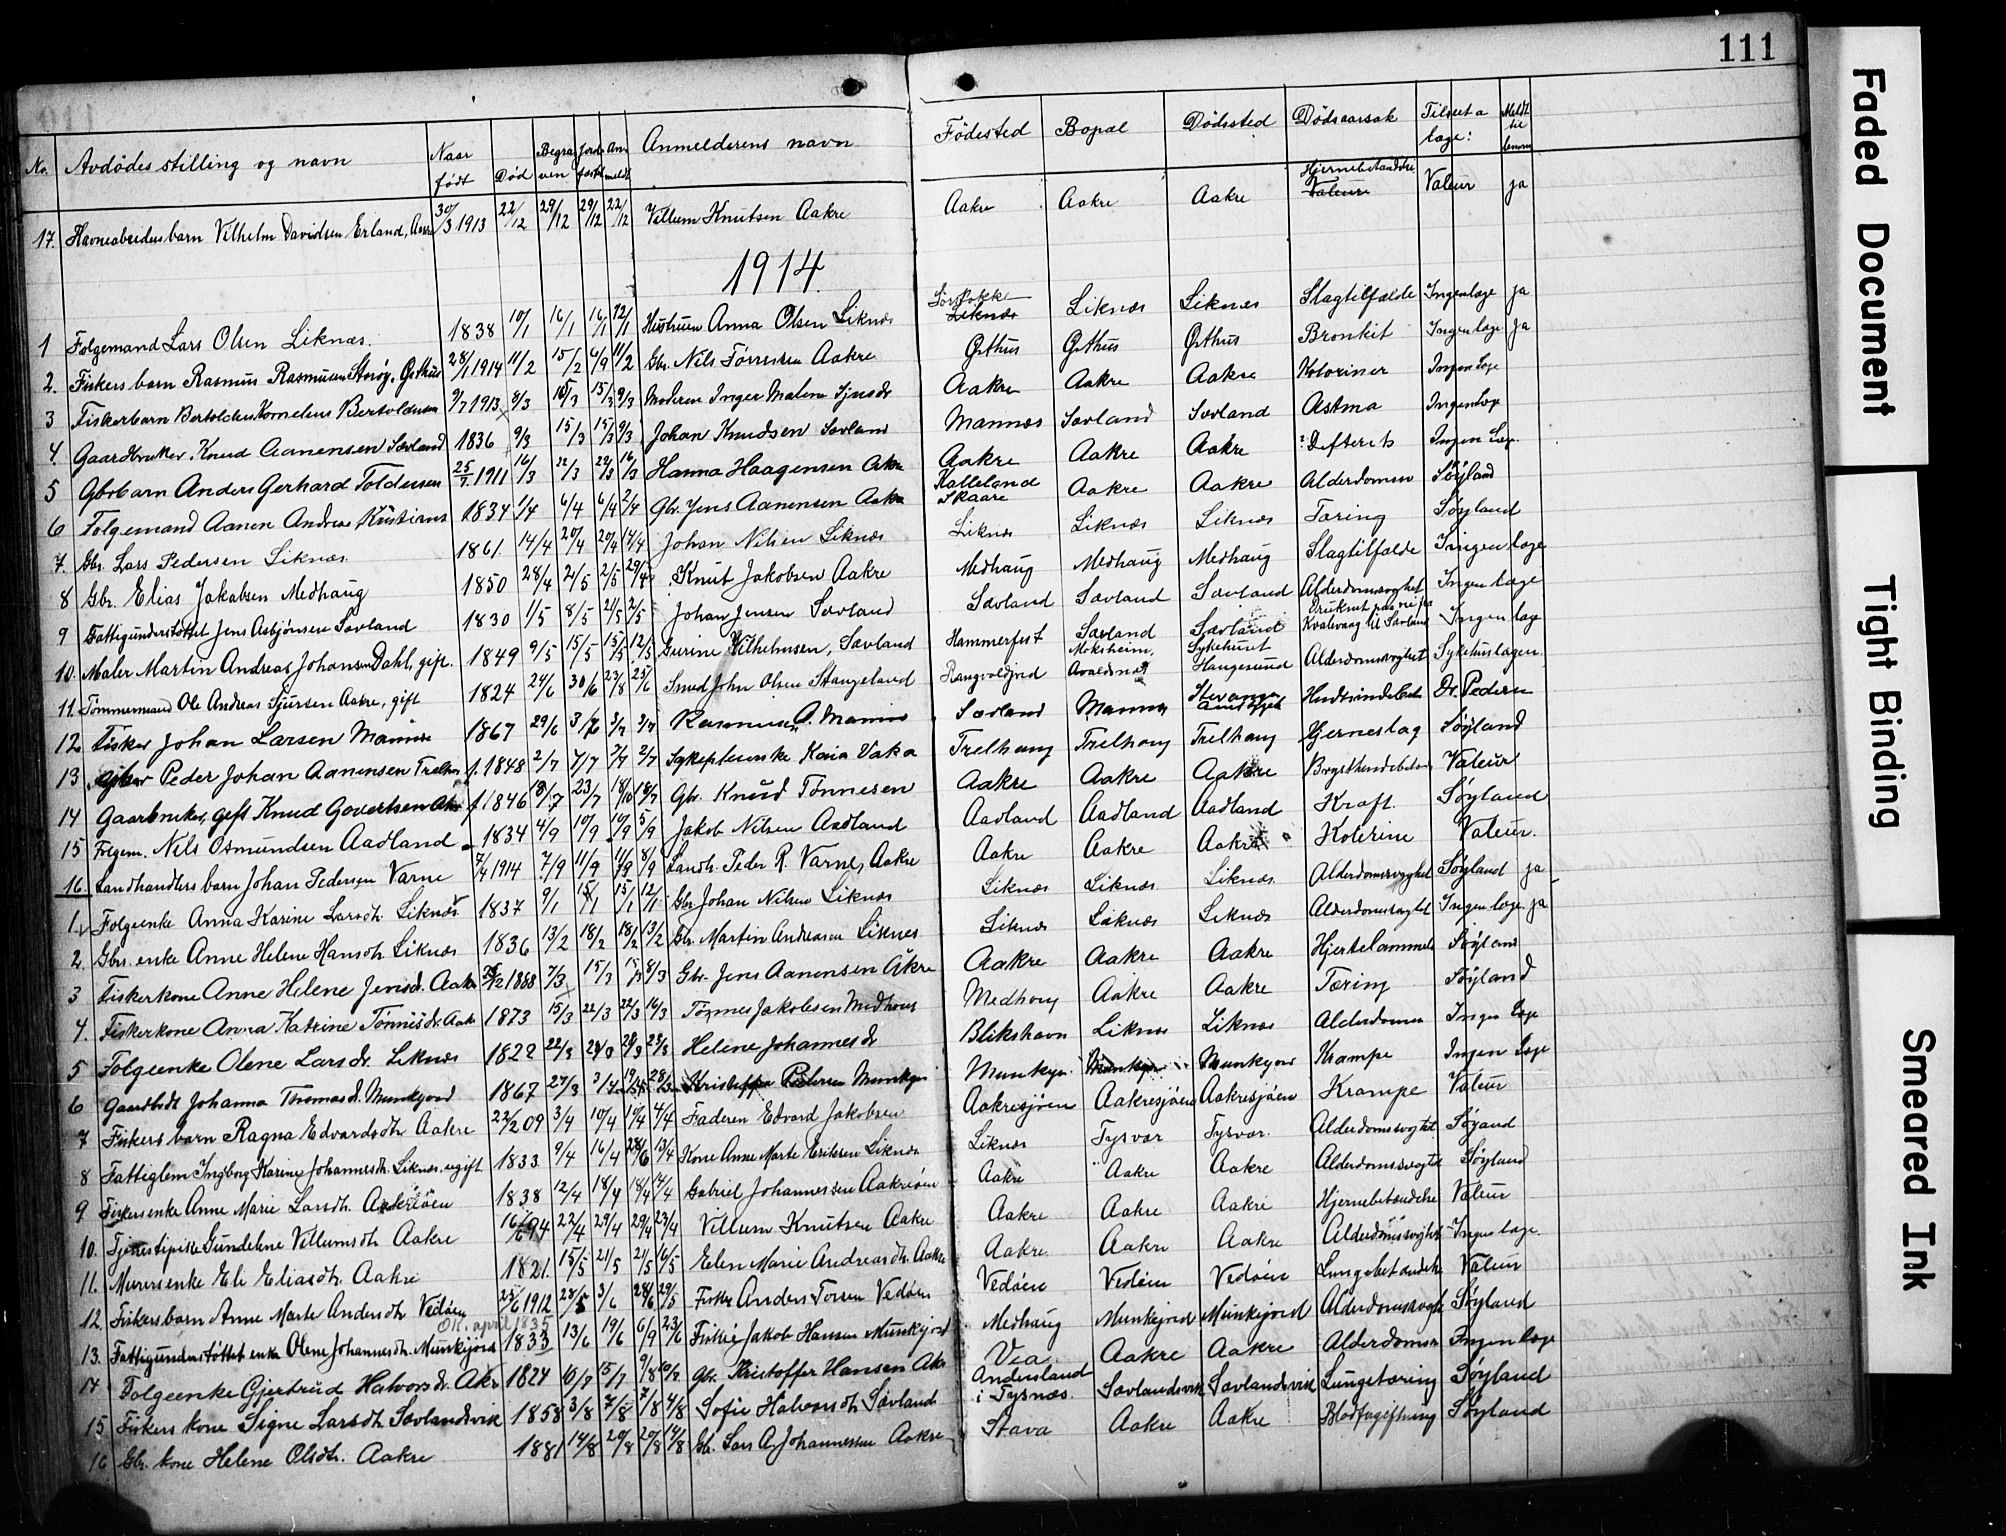 111
No. Avdødes stilling og navn Naar født Død Begraven Jordfæstet Anmeldt Anmelderens navn Fødested Bopæl Dødssted Dødsaarsak Tilset a læge: Meldt til
17. Havnearbeidersbarn Vilhelm Davidsen Erland, Aakre 30/3 1913 22/12 29/12 29/12 22/12 Villum Knutsen Aakre Aakre Aakre Aakre Hjernebetændelse Valeur Valeur ja
1914.
1 Følgemand Lars Olsen Liknæs. 1838 10/1 16/1 16/1 12/1 Hustruen Anna Olsen Liknæs Liknæs Liknæs Liknæs Slagtilfælde Ingen læge ja
2. Fiskers barn Rasmus Rasmusen Storøy, Østhus 28/1 1914 11/2 15/2 6/9 11/2 Gbr. Nils Førresen Aakre Østhus Østhus Østhus Bronkit Ingen læge ja
3 Fiskerbarn Bertoldus Kornelius Bertoldsen 9/7 1913 8/3 15/3 15/3 9/3 Moderen Inger Malene Sjursdr Aakre Aakre Aakre Koloriner Ingen Læge
4. Gaardbruker Knud Aanensen Sævland 1836 9/3 15/3 15/3 9/3 Johan Knudsen Sævland Mannes Sævland Sævland Astma Ingen læge
5 Gbrbarn Anders Gerhard Toldersen 25/7 1911 16/3 22/3 22/3 16/3 Hanna Haagensen Aakre Aakre Aakre Aakre ? Defterit Ingen Læge
6 Følgemand Aanen Andreas Kristians 1834 1/4 6/4 6/4 2/4 Gbr. Jens Aanensen Aakre Kalleland Skaare Aakre Aakre Alderdomsv Søyland
7. Gbr. Lars Pedersen Liknæs 1861. 14/4 20/4 20/4 14/4 Johan Nilsen Liknæs Liknæs Liknæs Liknæs Tæring Søyland
8 Gbr. Elias Jakobsen Medhaug 1850 28/4 2/5 2/5 29/4 Knut Jakobsen Aakre Medhaug Medhaug Medhaug Slagtilfælde Ingen læge
9 Fattigunderstøttet Jens Asbjørnsen Sævland 1830 1/5 8/5 21/5 2/5 Johan Jensen Sævland Sævland Sævland Sævland Alderdomssvaghet Ingen læge
10. Maler Martin Andreas Johansen Dahl, gift. 1849 9/5 15/5 15/5 12/5 Gurine Vilhelmsen, Sævland Hammerfest Sævland Sævland Druknet paa rei fra Kvalevaag til Sævland Ingen læge
11. Tømmermand Ole Andreas Sjursen Aakre, gift 1824 24/6 30/6 23/8 25/6 Smed John Olsen Stangeland Rangvoldjord Moksheim, Avaldsnes Sykehuset Haugesund Alderdomssvaghet Sykehuslægen.
12 Fisker Johan Larsen Mannes 1867 29/6 3/7 3/7 3/7 Rasmus O. Mannes Sævland Mannes Stavanger Dr. Pedersen
13 Peder Johan Aanensen Trelhaug f. 1848 2/7 7/7 7/7 2/7 Sykepleierske Kaia Vaka Trelhaug Trelhaug Trelhaug Hjerneslag Søyland
14 Gaarbruker, gift Knud Govertsen Akre f 1846 18/7 23/7 18/10 18/7 Gbr. Knud Tønnesen Aakre Aakre Aakre Valeur
15 Følgem. Nils Osmundsen Aadland 1834 4/9 10/9 10/9 5/9 Jakob Nilsen Aadland Aadland Aadland Aadland Kræft. Søyland
16. Landhandlers barn Johan Pedersen Varne 7/4 1914 7/9 11/9 11/9 8/9 Landh. Peder R. Varne, Aakre Aakre Aakre Aakre Kolerine Valeur.
1. Følgeenke Anna Karine Larsdtr. Liknæs 1837 9/1 15/1 15/1 12/1 Gbr Johan Nilsen Liknæs Liknæs Liknæs Liknæs Alderdomssvaghet Søyland ja
2. Gbrs. enke Anne Helene Hansdtr Liknæs 1836 13/2 18/2 18/2 13/2 Gbr. Martin Andreasen Liknes Liknes Liknæs Liknæs Alderdomssvaghet Ingen læge. ja
3 Fiskerkone Anne Helene Jensd. Aakre 1888 7/3 15/3 15/3 8/3 Gbr. Jens Aanensen Åkre Aakre Aakre Aakre Hjertelammelse Søyland
4. Fiskerkone Anna Katrine Tønnisdr. Aakre 1873 15/3 22/3 22/3 16/3 Tønnes Jakobsen Medhoug Medhoug Aakre Aakre Tæring Søyland
5 Følgeenke Olene Larsdr. Liknæs 1822 22/3 28/3 28/3 23/3 Helene Johannesdr Blikshavn Liknæs Liknæs Alderdomsv Ingen Læge
6 Gaardbrk Johanna Thomasd. Munkejord 1867 27/3 3/4 19/4 28/3 Kristoffer Pedersen Munkejor Munkejor. Munkejor Munkejor Krampe Ingen Læge
7 Fiskers barn Ragna Edvardsdtr Aakre 22/2 09 3/4 10/4 10/4 4/4 Faderen Edvard Jakobsen Aakresjøen Aakresjøen Aakresjøen Krampe Valeur
8 Fattiglem Ingborg Karine Johannesdtr. Liknæs, ugift 1833 9/4 16/4 28/6 13/4 Kone Anne Marte Eriksen Liknæs Liknæs Tysvær Tysvær. Alderdomssvaghet. Søyland
9. Fiskersenke Anne Marie Larsdtr. Aakreøen 1838 12/4 18/4 18/4 14/4 Gabriel Johannessen Aakreøen Aakre Aakre Aakre Alderdomssvaghet Søyland
10. Tjenestepike Gundeline Villumsdtr Aakre 16/6 94 22/4 29/4 29/4 23/4 Villum Knutsen Aakre Aakre Aakre Aakre Hjernebetændelse Valeur
11. Murersenke Eli Eliasdtr. Aakre 1821. 15/5 21/5 21/5 16/5 Elen Marie Andreasdtr. Aakre Aakre Aakre Aakre Alderdomssvaghet Ingen læge.
12. Fiskersbarn Anne Marte Andersdtr Vedøen 25/6 1912 28/5 3/6 28/6 29/5 Fisker Anders Torsen Vedøen Vedøen Vedøen Vedøen Lungebetændelse Valeur
OK. april 1835
13. Fattigunderstøttet enke Olene Johannesdtr. Munkejord 1833 13/6 19/6 6/9 23/6 Fisker Jakob Hansen Munkejord Medhaug Munkejord Munkejord Alderdomssvaghet Søyland
14 Følgeenke Gjertrud Halvorsdr. Akre 1824 10/7 15/7 9/8 10/7 Gbr. Kristoffer Hansen Akre Vea Aakre Aakre Alderdomsv Ingen læge
15 Fiskers kone Signe Larsdtr Sævlandsvik 1858 3/8 7/8 7/8 4/8 Sofie Halvorsdtr Sævland Andersland i Tysnæs. Sævlandsvik Sævlandsvik Lungetæring Søyland
16 Gbr. kone Helene Olsdtr. Aakre 1881 14/8 20/8 20/8 14/8 Gbr. Lars A. Johannessen Aakre Stava Aakre Aakre Blodforgiftning Søyland
Faded Document
Tight Binding
Smeared Ink